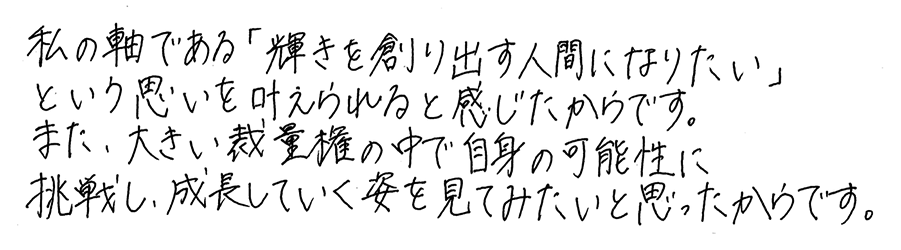 私の軸である「輝きを創り出す人間になりたい」
という思いを叶えられると感じたからです。
また、大きい裁量権の中で自身の可能性に
挑戦し、成長していく姿を見てみたいと思ったからです。